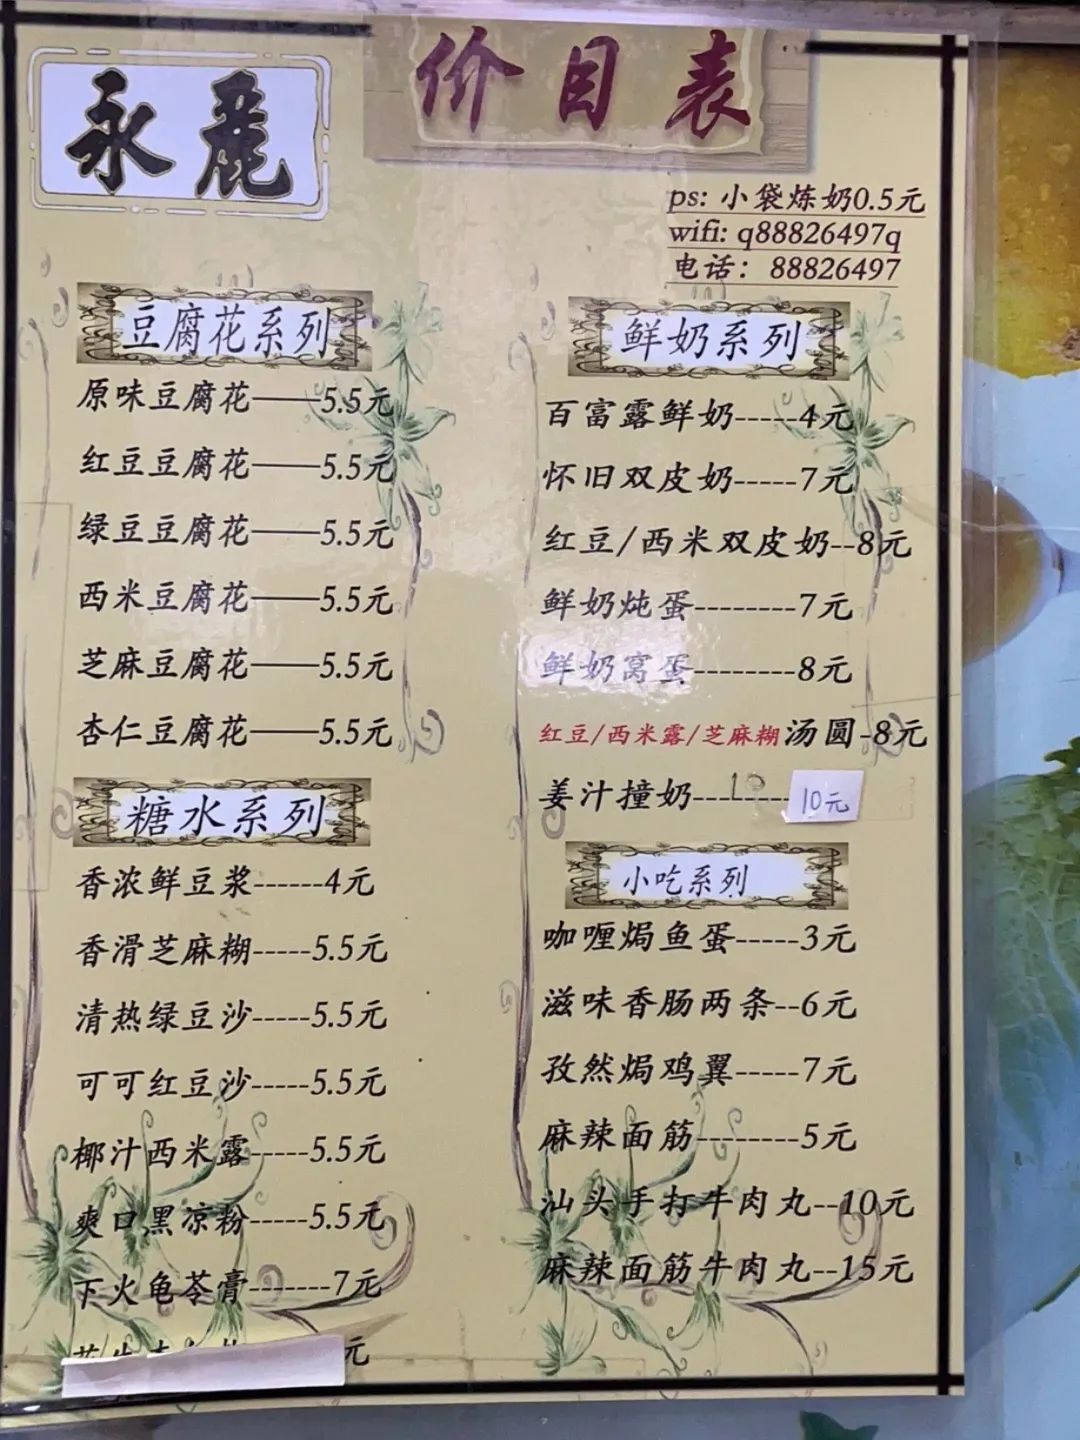 永麓
价目表
ps: 小袋炼奶0.5元
wifi: q88826497q
电话: 88826497
豆腐花系列
原味豆腐花——5.5元
红豆豆腐花——5.5元
绿豆豆腐花——5.5元
西米豆腐花——5.5元
芝麻豆腐花——5.5元
杏仁豆腐花——5.5元
糖水系列
香浓鲜豆浆------4元
香滑芝麻糊-----5.5元
清热绿豆沙-----5.5元
可可红豆沙-----5.5元
椰汁西米露-----5.5元
爽口黑凉粉-----5.5元
下火龟苓膏-------7元
元
鲜奶系列
百富露鲜奶-----4元
怀旧双皮奶-----7元
红豆/西米双皮奶--8元
鲜奶炖蛋--------7元
鲜奶窝蛋--------8元
红豆/西米露/芝麻糊汤圆-8元
姜汁撞奶---10---10元
小吃系列
咖喱焗鱼蛋-----3元
滋味香肠两条--6元
孜然焗鸡翼-----7元
麻辣面筋--------5元
汕头手打牛肉丸--10元
麻辣面筋牛肉丸--15元